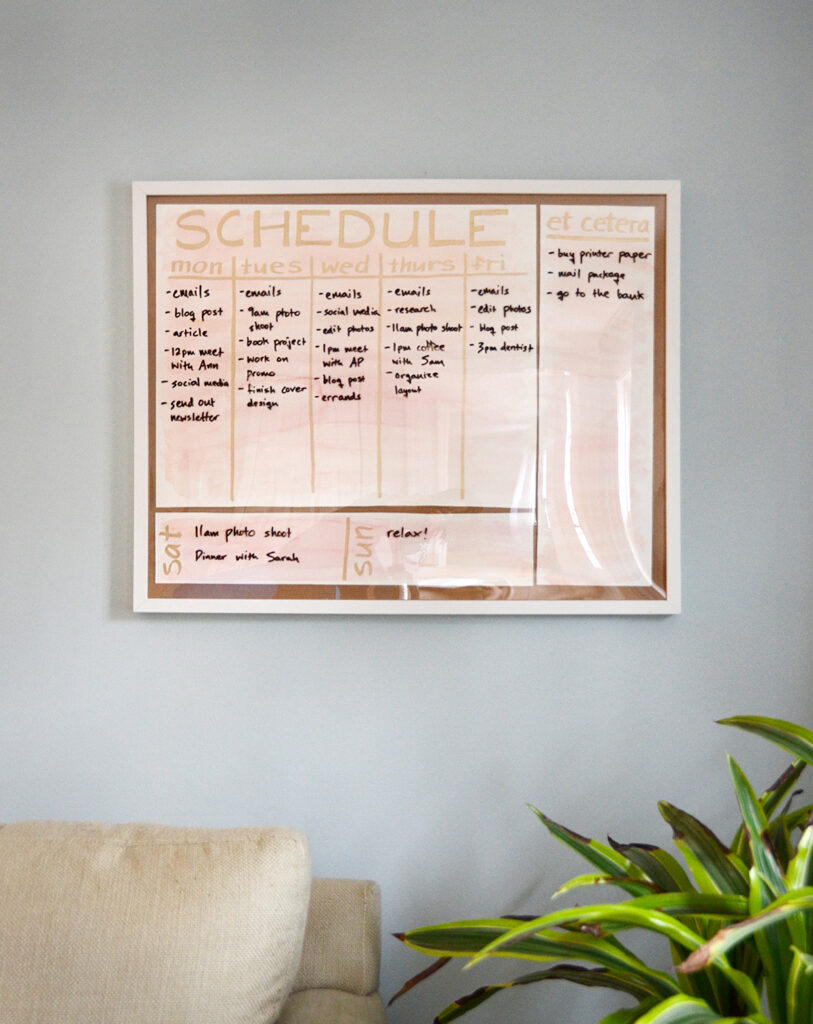 SCHEDULE
mon
-emails
- blog post
- article
- 12pm meet
with Ann
- social media
- send out
newsletter
tues
-emails
- 9am photo
shoot
- book project
- work on
promo
- finish cover
design
wed
-emails
-social media
-edit photos
-1pm meet
with AP
- blog post
-errands
thurs
- emails
- research
- 11am photo shoot
-1pm coffee
with Sam
- organize
layout
fri
- emails
- edit photos
- blog post
- 3pm dentist
et cetera
- buy printer paper
- mail package
- go to the bank
sat
11am photo shoot
Dinner with Sarah
sun
relax!